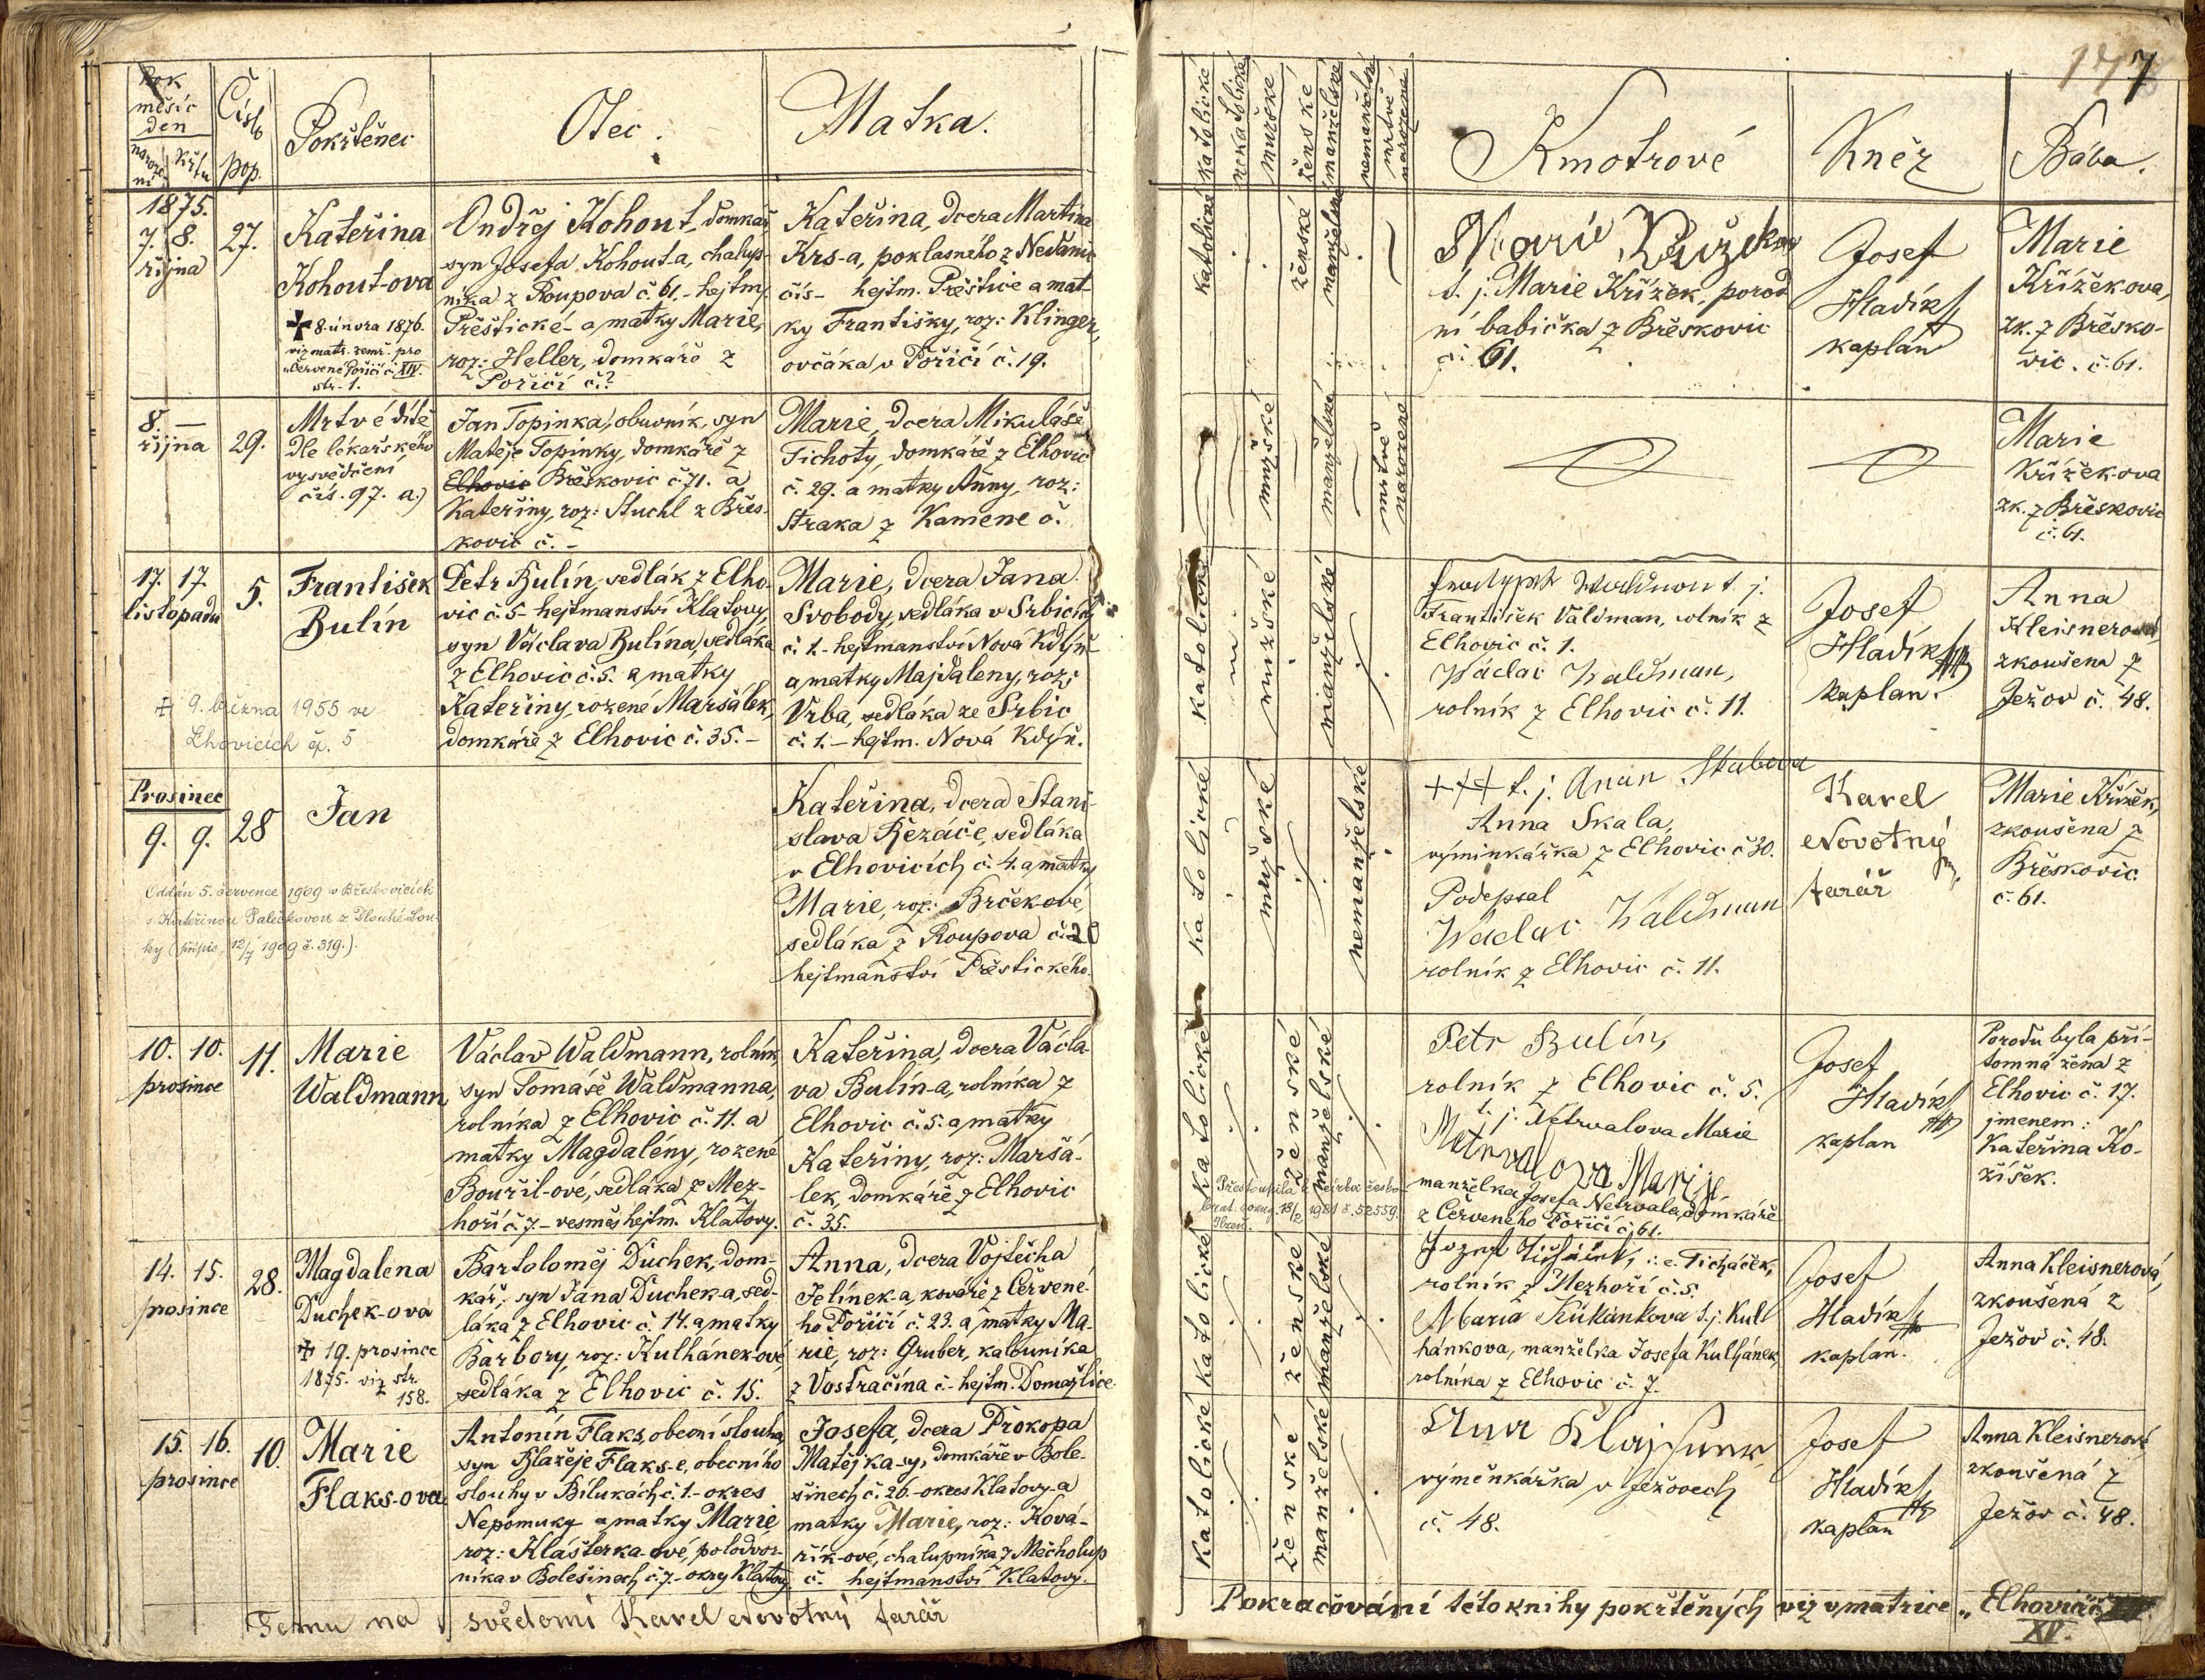 Rok
měsíc
den
naroze-
ní
Křtu
Číslo
pop.
Pokřtěnec
Otec.
Matka.
1875.
7. 8.
října
27.
Kateřina
Kohout-ova
8. února 1876.
viz matr. zemř. pro
„Červené Poříčí č. XIV.
str. 1.
Ondřej Kohout, domkař,
syn Josefa Kohout-a, chalup-
níka z Roupova č. 61.- hejtm.
Přeštické - a matky Marie,
roz: Heller, domkáře z
Poříčí č.?
Kateřina, dcera Martina
Krs-a, poklasného z Nedanic
čís- hejtm. Přeštice a mat-
ky Františky, roz: Klinger,
ovčáka v Poříčí č. 19.
8. —
října
29.
Mrtvé dítě
dle lékařského
vysvědčení
čís. 97. a.)
Jan Topinka, obuvník, syn
Matěje Topinky, domkáře z
Elhovic Břeskovic č. 71. a
Kateřiny, roz: Stuchl z Břes-
kovic č. -
Marie, dcera Mikuláše
Tichoty, domkáře z Elhovic
č. 29. a matky Anny, roz:
Straka z Kamene č.
17. 17.
listopadu
5.
František
Bulín
9. března 1955 ve
Lhovicích čp. 5
Petr Bulín, sedlák z Elho-
vic č. 5- hejtmanství Klatovy,
syn Václava Bulína, sedláka
z Elhovic č. 5. a matky
Kateřiny, rozené Maršálek,
domkáře z Elhovic č. 35. -
Marie, dcera Jana
Svobody, sedláka v Srbicích
č. 1.- hejtmanství Nová Kdyň-
a matky Majdaleny, roz:
Vrba, sedláka ze Srbic
č. 1. - hejtm. Nová Kdyň.
Prosinec
9. 9.
28
Jan
Oddán 5. července 1909 v Břeskovicích
s Kateřinou Palečkovou z Dlouhé Lou-
ky (přípis 12/7 1909 č. 319.)
Kateřina, dcera Stani-
slava Řezáče, sedláka
v Elhovicích č. 4. a matky
Marie, roz: Brček-ove,
sedláka z Roupova č. 20
hejtmanství Přestického.
10. 10.
prosince
11.
Marie
Waldmann
Václav Waldmann, rolník,
syn Tomáše Waldmanna,
rolníka z Elhovic č. 11. a
matky Magdalény, rozené
Bouřil-ové, sedláka z Mez-
hoří č. 7 - vesměs hejtm. Klatovy.
Kateřina, dcera Václa-
va Bulín-a, rolníka z
Elhovic č. 5. a matky
Kateřiny, roz: Maršá-
lek, domkáře z Elhovic
č. 35.
14. 15.
prosince
28.
Magdalena
Duchek-ova
19. prosince
1875. viz str.
158.
Bartoloměj Duchek, dom-
kář, syn Jana Duchek-a, sed-
láka z Elhovic č. 14. a matky
Barbory, roz: Kulhánek-ové
sedláka z Elhovic č. 15.
Anna, dcera Vojtěcha
Jelínek-a, kováře z Červené-
ho Poříčí č. 23. a matky Ma-
rie, roz: Gruber, kalouníka
z Vostračína č.- hejtm. Domažlice.
15. 16.
prosince
10.
Marie
Flaks-ova
Antonín Flaks, obecní slouha
syn Blažeje Flaks-e, obecního
slouhy v Bílukách č. 1.- okres
Nepomuky a matky Marie,
roz: Klášterka-ové, polodvor-
níka v Bolešinech č. 7.- okr. Klatovy
Josefa, dcera Prokopa
Matějka-, domkáře v Bole-
šinech č. 26.- okres Klatovy - a
matky Marie, roz: Ková-
řík-ové, chalupníka z Mecholup
č. hejtmanství Klatovy.
Temu na svědomí Karel Novotný farář
177
katolické
nekatolické
mužské
ženské
manželské
nemanželské
mrtvě
narozené
Kmotrové
Kněz
Bába.
katolické
ženské
manželské
t. j. Marie Křížek, porod
ní babička z Břeskovic
č. 61.
Josef
Hladík
kaplan
Marie
Křížekova,
zk. z Břesko-
vic. č. 61.
mužské
manželské
mrtvě
narozené
Marie
Křížek-ova
zk. z Břeskovic
č. 61.
katolické
mužské
manželské
František Valdman, rolník z
Elhovic č. 1.
Wáclav Waldman,
rolník z Elhovic č. 11.
Josef
Hladík
kaplan.
Anna
Kleisnerová
zkoušena z
Ježov č. 48.
katolické
mužské
nemanželské
+++ t. j.
Anna Skala,
výminkářka z Elhovic č 30.
Podepsal
Wáclav Waldman
rolník z Elhovic č. 11.
Karel
Novotný
farář
Marie Křížek,
zkoušena z
Břeskovic
č. 61.
katolické
ženské
manželské
Petr Bulín,
rolník z Elhovic č. 5.
t. j. Netrvalova Marie
Metrvalova Marije
manželka Josefa Netrvala, domkáře
z Červeného Poříčí č. 61.
Josef
Hladík
kaplan
Porodu byla pří-
tomná žena z
Elhovic č. 17.
jmenem:
Kateřina Ko-
žíšek.
katolické
ženské
manželské
i. e. Ticháček,
rolník z Mezhoří č. 5.
t. j. Kul
hánkova, manželka Josefa Kulhánek,
rolníka z Elhovic č. 7.
Josef
Hladík
kaplan.
Anna Kleisnerová,
zkoušená z
Ježov č. 48.
katolické
ženské
manželské
výměnkářka v Ježovech
č. 48.
Josef
Hladík
kaplan
Anna Kleisnerová
zkoušená z
Ježov č. 48.
Pokračování této knihy pokřtěných viz v matrice „Elhovic
XV.